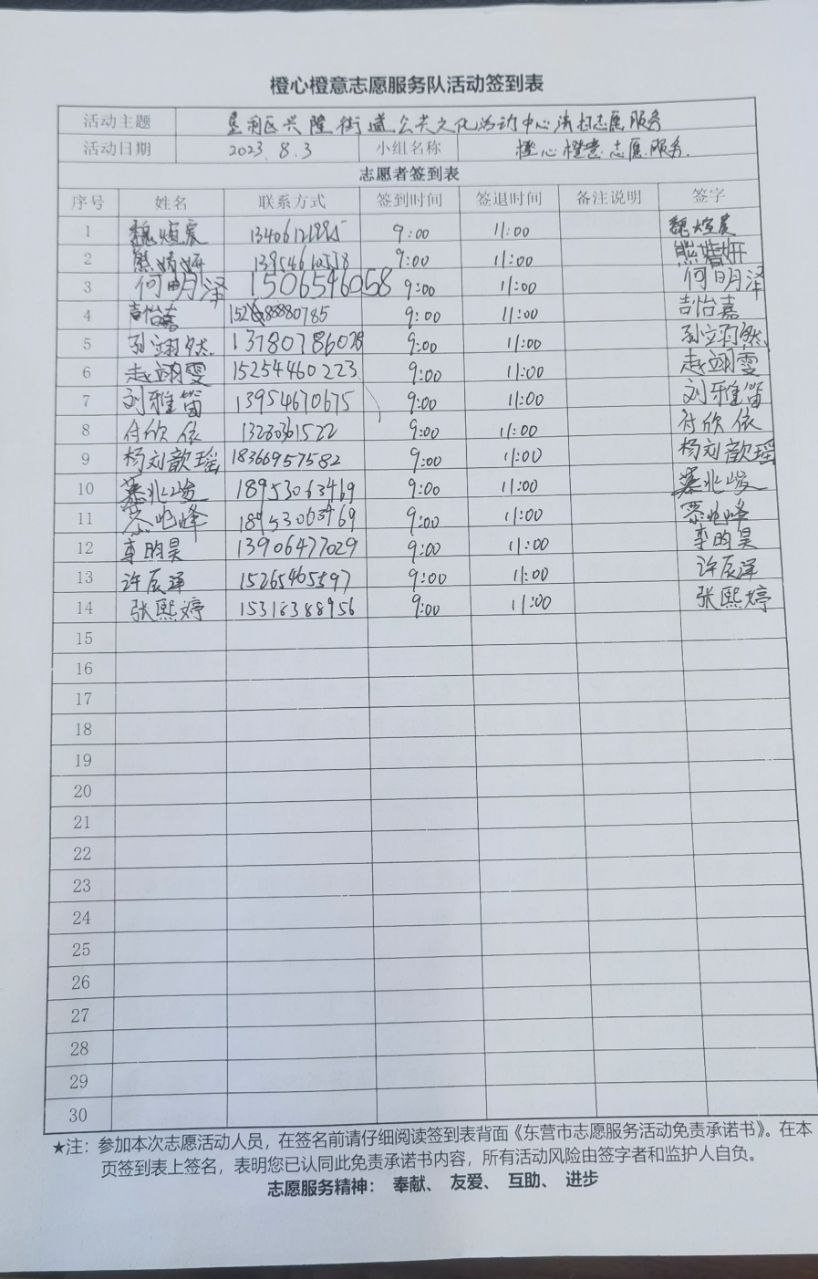 橙心橙意志愿服务队活动签到表
活动主题 垦利区兴隆街道公共文化活动中心清扫志愿服务
活动日期 2023.8.3 小组名称 橙心橙意志愿服务.
志愿者签到表
序号 姓名 联系方式 签到时间 签退时间 备注说明 签字
1 9:00 11:00
2 13954610558 9:00 11:00
3 何明泽 1506546058 9:00 11:00 何明泽
4 吉怡嘉 9:00 11:00 吉怡嘉
5 孙立翔然 13780786028 9:00 11:00 孙立翔然
6 赵翊雯 15254460223 9:00 11:00 赵翊雯
7 刘雅笛 13954670675 9:00 11:00 刘雅笛
8 付欣依 13280361522 9:00 11:00 付欣依
9 杨刘歆瑶 18366957582 9:00 11:00 杨刘歆瑶
10 綦兆峻 18953063469 9:00 11:00 綦兆峻
11 綦兆峰 18953063469 9:00 11:00 綦兆峰
12 李昀昊 13906477029 9:00 11:00 李昀昊
13 许辰泽 15265465597 9:00 11:00 许辰泽
14 张熙婷 15316388956 9:00 11:00 张熙婷
15
16
17
18
19
20
21
22
23
24
25
26
27
28
29
30
★注：参加本次志愿活动人员，在签名前请仔细阅读签到表背面《东营市志愿服务活动免责承诺书》。在本
页签到表上签名，表明您已认同此免责承诺书内容，所有活动风险由签字者和监护人自负。
志愿服务精神： 奉献、 友爱、 互助、 进步